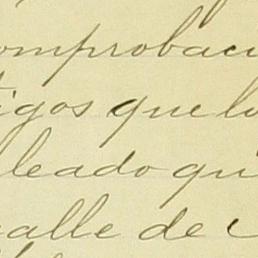 omprobaci
tigos que lo
leado qu
calle de